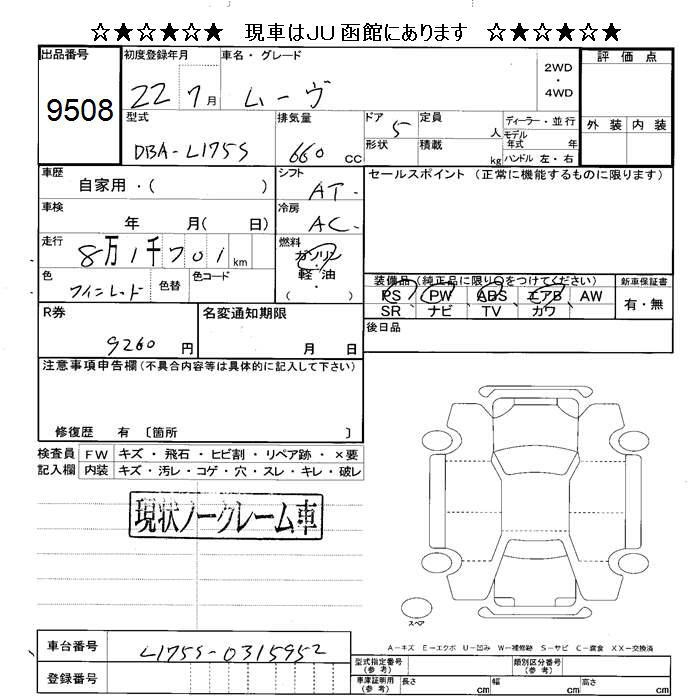 ☆★☆★☆★ 現車はJU函館にあります ☆★☆★☆★
出品番号
9508
初度登録年月
22 7月
車名・グレード
ムーヴ
2WD
・
4WD
評価点
外装 内装
型式
DBA-L175S
排気量
660 CC
ドア
5
定員
人
形状
積載
kg
ディーラー・並行
モデル
年式 年
ハンドル 左・右
車歴
自家用・( )
シフト
AT
セールスポイント (正常に機能するものに限ります)
車検
年 月( 日)
冷房
AC
走行
8万1千701km
燃料
ガソリン
軽油
( )
色
色替
色コード
装備品(純正品に限り〇をつけてください)
PS PW ABS エアB AW
SR ナビ TV カワ
新車保証書
有・無
後日品
R券
9260 円
名変通知期限
月 日
注意事項申告欄(不具合内容等は具体的に記入して下さい)
修復歴 有 〔箇所 〕
検査員
記入欄
FW キズ・飛石・ヒビ割・リペア跡・×要
内装 キズ・汚レ・コゲ・穴・スレ・キレ・破レ
現状ノークレーム車
スペア
A-キズ E-エクボ U-凹み W-補修跡 S-サビ C-腐食 XX-交換済
車台番号
L175S-0315952
登録番号
型式指定番号
(参考)
類別区分番号
(参考)
車庫証明用
(参考)
長さ cm
幅 cm
高さ cm